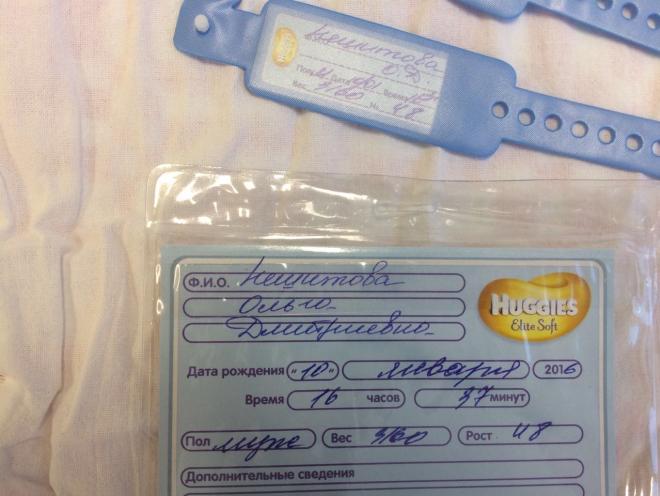 Нешитова
О.Д.
Пол М Дата 10/I Время 16³⁷
Вес 3160 № 48
Ф.И.О. Нешитова
Ольга
Дмитриевна
HUGGIES
Elite Soft
Дата рождения "10" января 2016
Время 16 часов 37 минут
Пол муж Вес 3160 Рост 48
Дополнительные сведения